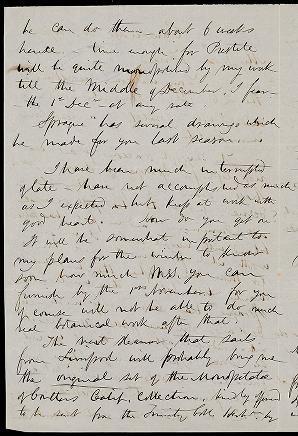 he can do them about 6 weeks
hence – time enough for Prestele
will be quite monopolized by my work
till the Middle of December, I fear –
the 1st Decr at any rate
Sprague has several drawings which
he made for you last season.
I have been much interrupted
of late – have not accomplished as much
as I expected – but keep at work with
good heart. How do you get on?
It will be somewhat important to
my plans for the winter to know
soon how much MSS. you can
furnish by the 1st November. for you
of course will not be able to do much
real botanical work after that.
The next steamer that sails
from Liverpool will probably bring me
the original set of the Monopetalae
of Coulter's Calif. Collection, kindly
to be sent from the Trinity Coll. by